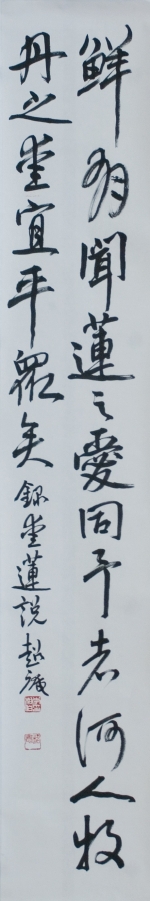 鮮有聞蓮之愛同予者何人牡
丹之愛宜乎眾矣 錄愛蓮說 趙